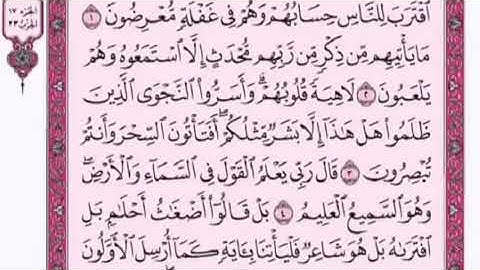 الجزء ١٧
الحزب ٣٣
ٱقۡتَرَبَ لِلنَّاسِ حِسَابُهُمۡ وَهُمۡ فِي غَفۡلَةٖ مُّعۡرِضُونَ ١
مَا يَأۡتِيهِم مِّن ذِكۡرٖ مِّن رَّبِّهِم مُّحۡدَثٍ إِلَّا ٱسۡتَمَعُوهُ وَهُمۡ
يَلۡعَبُونَ ٢ لَاهِيَةٗ قُلُوبُهُمۡۗ وَأَسَرُّواْ ٱلنَّجۡوَى ٱلَّذِينَ
ظَلَمُواْ هَلۡ هَٰذَآ إِلَّا بَشَرٞ مِّثۡلُكُمۡۖ أَفَتَأۡتُونَ ٱلسِّحۡرَ وَأَنتُمۡ
تُبۡصِرُونَ ٣ قَالَ رَبِّي يَعۡلَمُ ٱلۡقَوۡلَ فِي ٱلسَّمَآءِ وَٱلۡأَرۡضِۖ
وَهُوَ ٱلسَّمِيعُ ٱلۡعَلِيمُ ٤ بَلۡ قَالُوٓاْ أَضۡغَٰثُ أَحۡلَٰمِۭ بَلِ
ٱفۡتَرَىٰهُ بَلۡ هُوَ شَاعِرٞ فَلۡيَأۡتِنَا بِـَٔايَةٖ كَمَآ أُرۡسِلَ ٱلۡأَوَّلُونَ